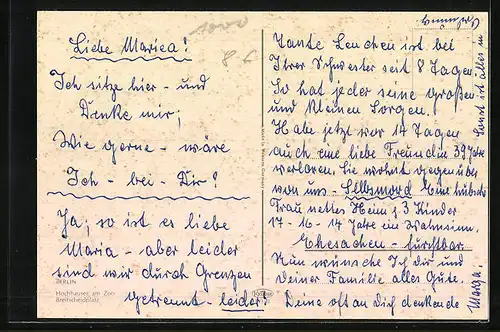 1000
8 €
Liebe Marica!
Ich sitze hier - und
Denke mir,
Wie gerne - wäre
Ich - bei - Dir?
Ja, so ist es liebe
Maria - aber leider
sind wir durch Grenzen
getrennt - leider!
BERLIN
Hochhäuser am Zoo
Breitscheidplatz
Tante Lenchen ist bei
Ihrer Schwester seit 8 Tagen.
So hat jeder seine großen
und kleinen Sorgen.
Habe jetzt vor 14 Tagen
auch eine liebe Freundin 39 Jahre
verloren. Sie wohnt gegenüber
von uns - Selbsmord Eine hübsche
Frau nettes Heim u. 3 Kinder
17 - 16 - 14 Jahre ein Wahnsinn.
Ehesachen - furchtbar.
Nun wünsche Ich dir und
Deiner Familie alles Gute.
Deine oft an Dich denkende
Marga.
Sonst ist alles in
Ordnung